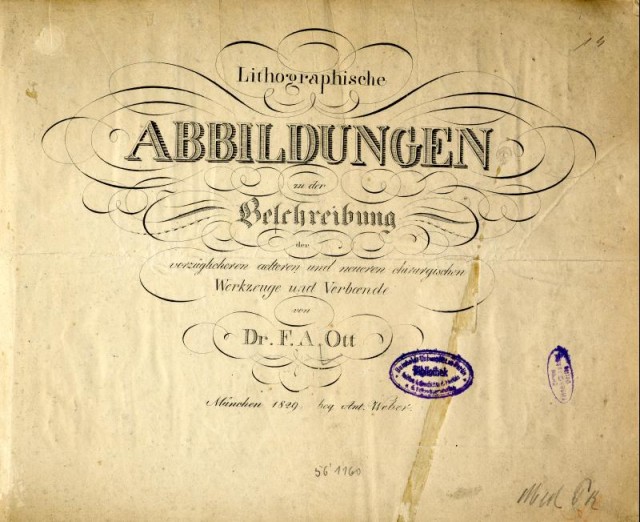 14
Lithographische
ABBILDUNGEN
zu der
Beschreibung
der
vorzüglicheren aelteren und neueren chirurgischen
Werkzeuge und Verbaende
von
Dr. F. A. Ott
Bibliothek
München 1829 bey Ant. Weber.
56'1160
Med